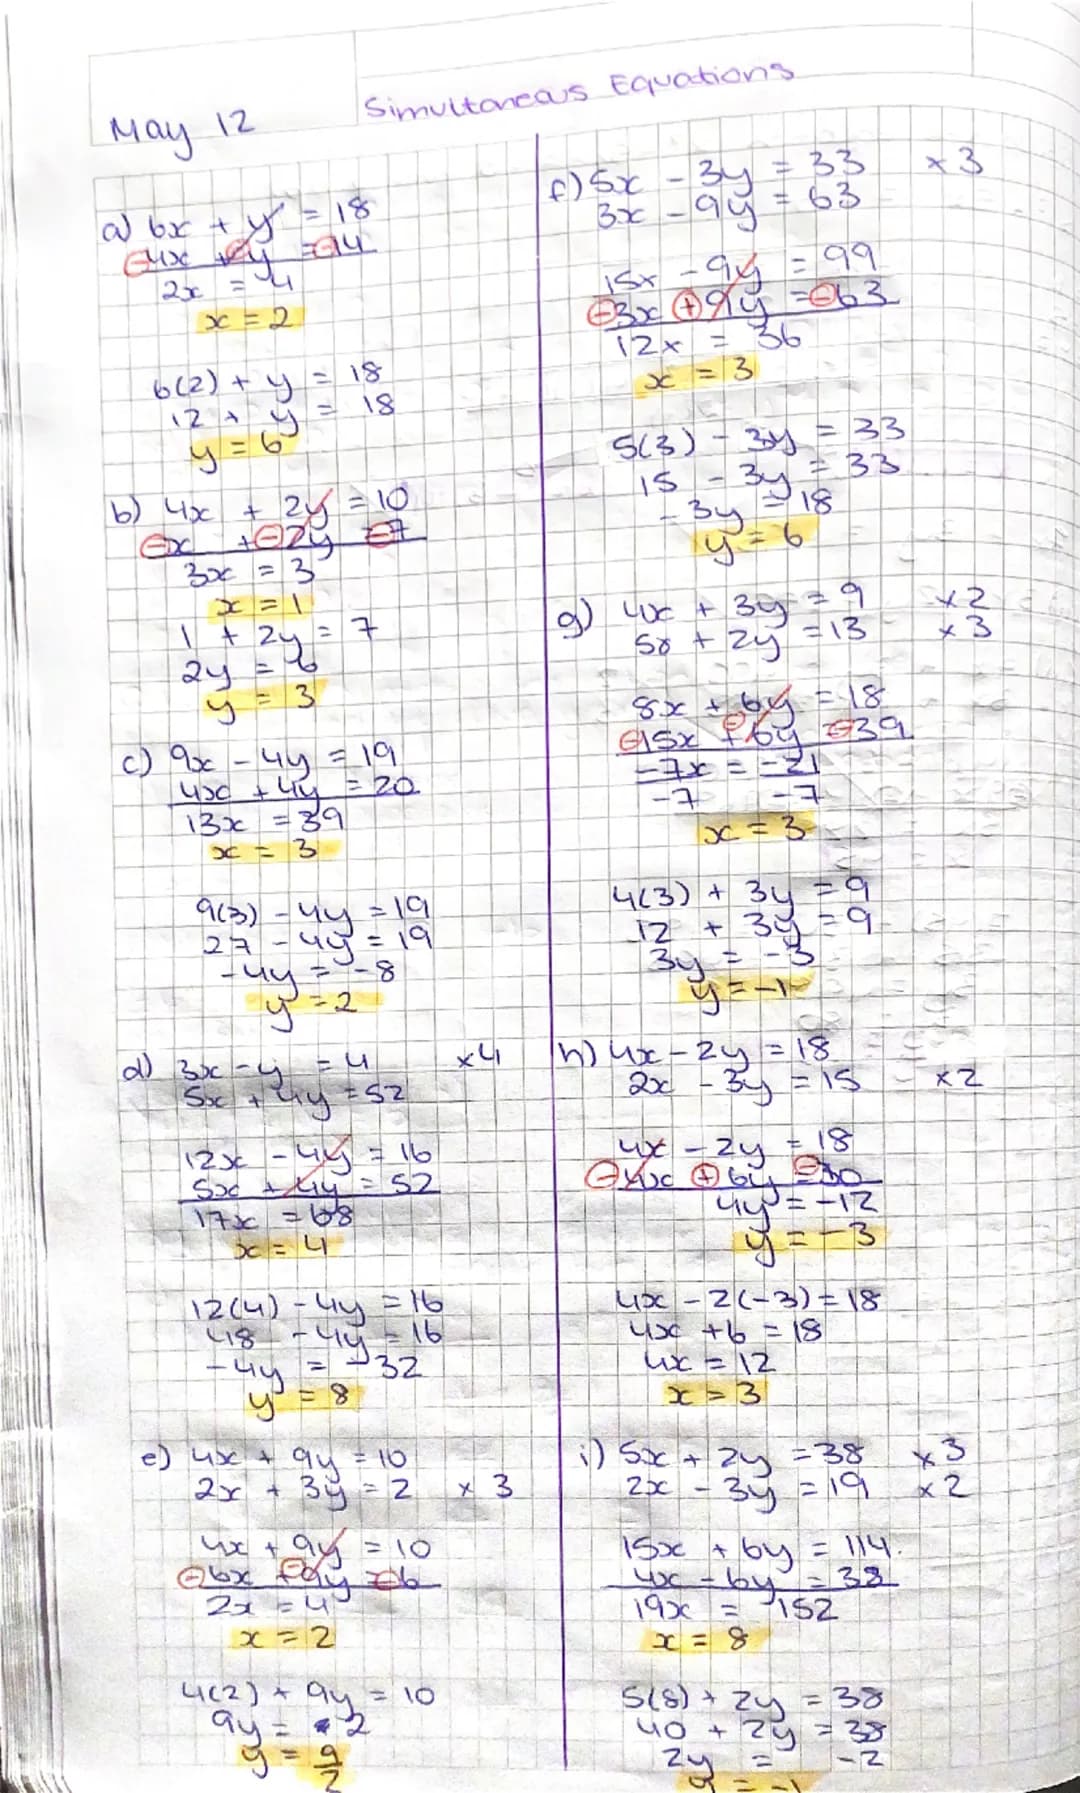 May 12
Simultaneous Equations
a) 6x + y = 18
-4x + -y = -14
2x = 4
x = 2
6(2) + y = 18
12 + y = 18
y = 6
b) 4x + 2y = 10
-x + -2y = -7
3x = 3
x = 1
1 + 2y = 7
2y = 6
y = 3
c) 9x - 4y = 19
4x + 4y = 20
13x = 39
x = 3
9(3) - 4y = 19
27 - 4y = 19
-4y = -8
y = 2
d) 3x - y = 4 ×4
5x + 4y = 52
12x - 4y = 16
5x + 4y = 52
17x = 68
x = 4
12(4) - 4y = 16
48 - 4y = 16
-4y = -32
y = 8
e) 4x + 9y = 10
2x + 3y = 2 × 3
4x + 9y = 10
-6x + -9y = -6
2x = 4
x = 2
4(2) + 9y = 10
9y = 2
y = 9/2
f) 5x - 3y = 33 × 3
3x - 9y = 63
15x - 9y = 99
-3x + 9y = -63
12x = 36
x = 3
5(3) - 3y = 33
15 - 3y = 33
-3y = 18
y = 6
g) 4x + 3y = 9 ×2
5x + 2y = 13 ×3
8x + 6y = 18
-15x + -6y = -39
-7x = -21
-7 -7
x = 3
4(3) + 3y = 9
12 + 3y = 9
3y = -3
y = -1
h) 4x - 2y = 18
2x - 3y = 15 ×2
4x - 2y = 18
-4x + 6y = -30
4y = -12
y = -3
4x - 2(-3) = 18
4x + 6 = 18
4x = 12
x = 3
i) 5x + 2y = 38 ×3
2x - 3y = 19 ×2
15x + 6y = 114.
4x - 6y = 38
19x = 152
x = 8
5(8) + 2y = 38
40 + 2y = 38
2y = -2
y = -1